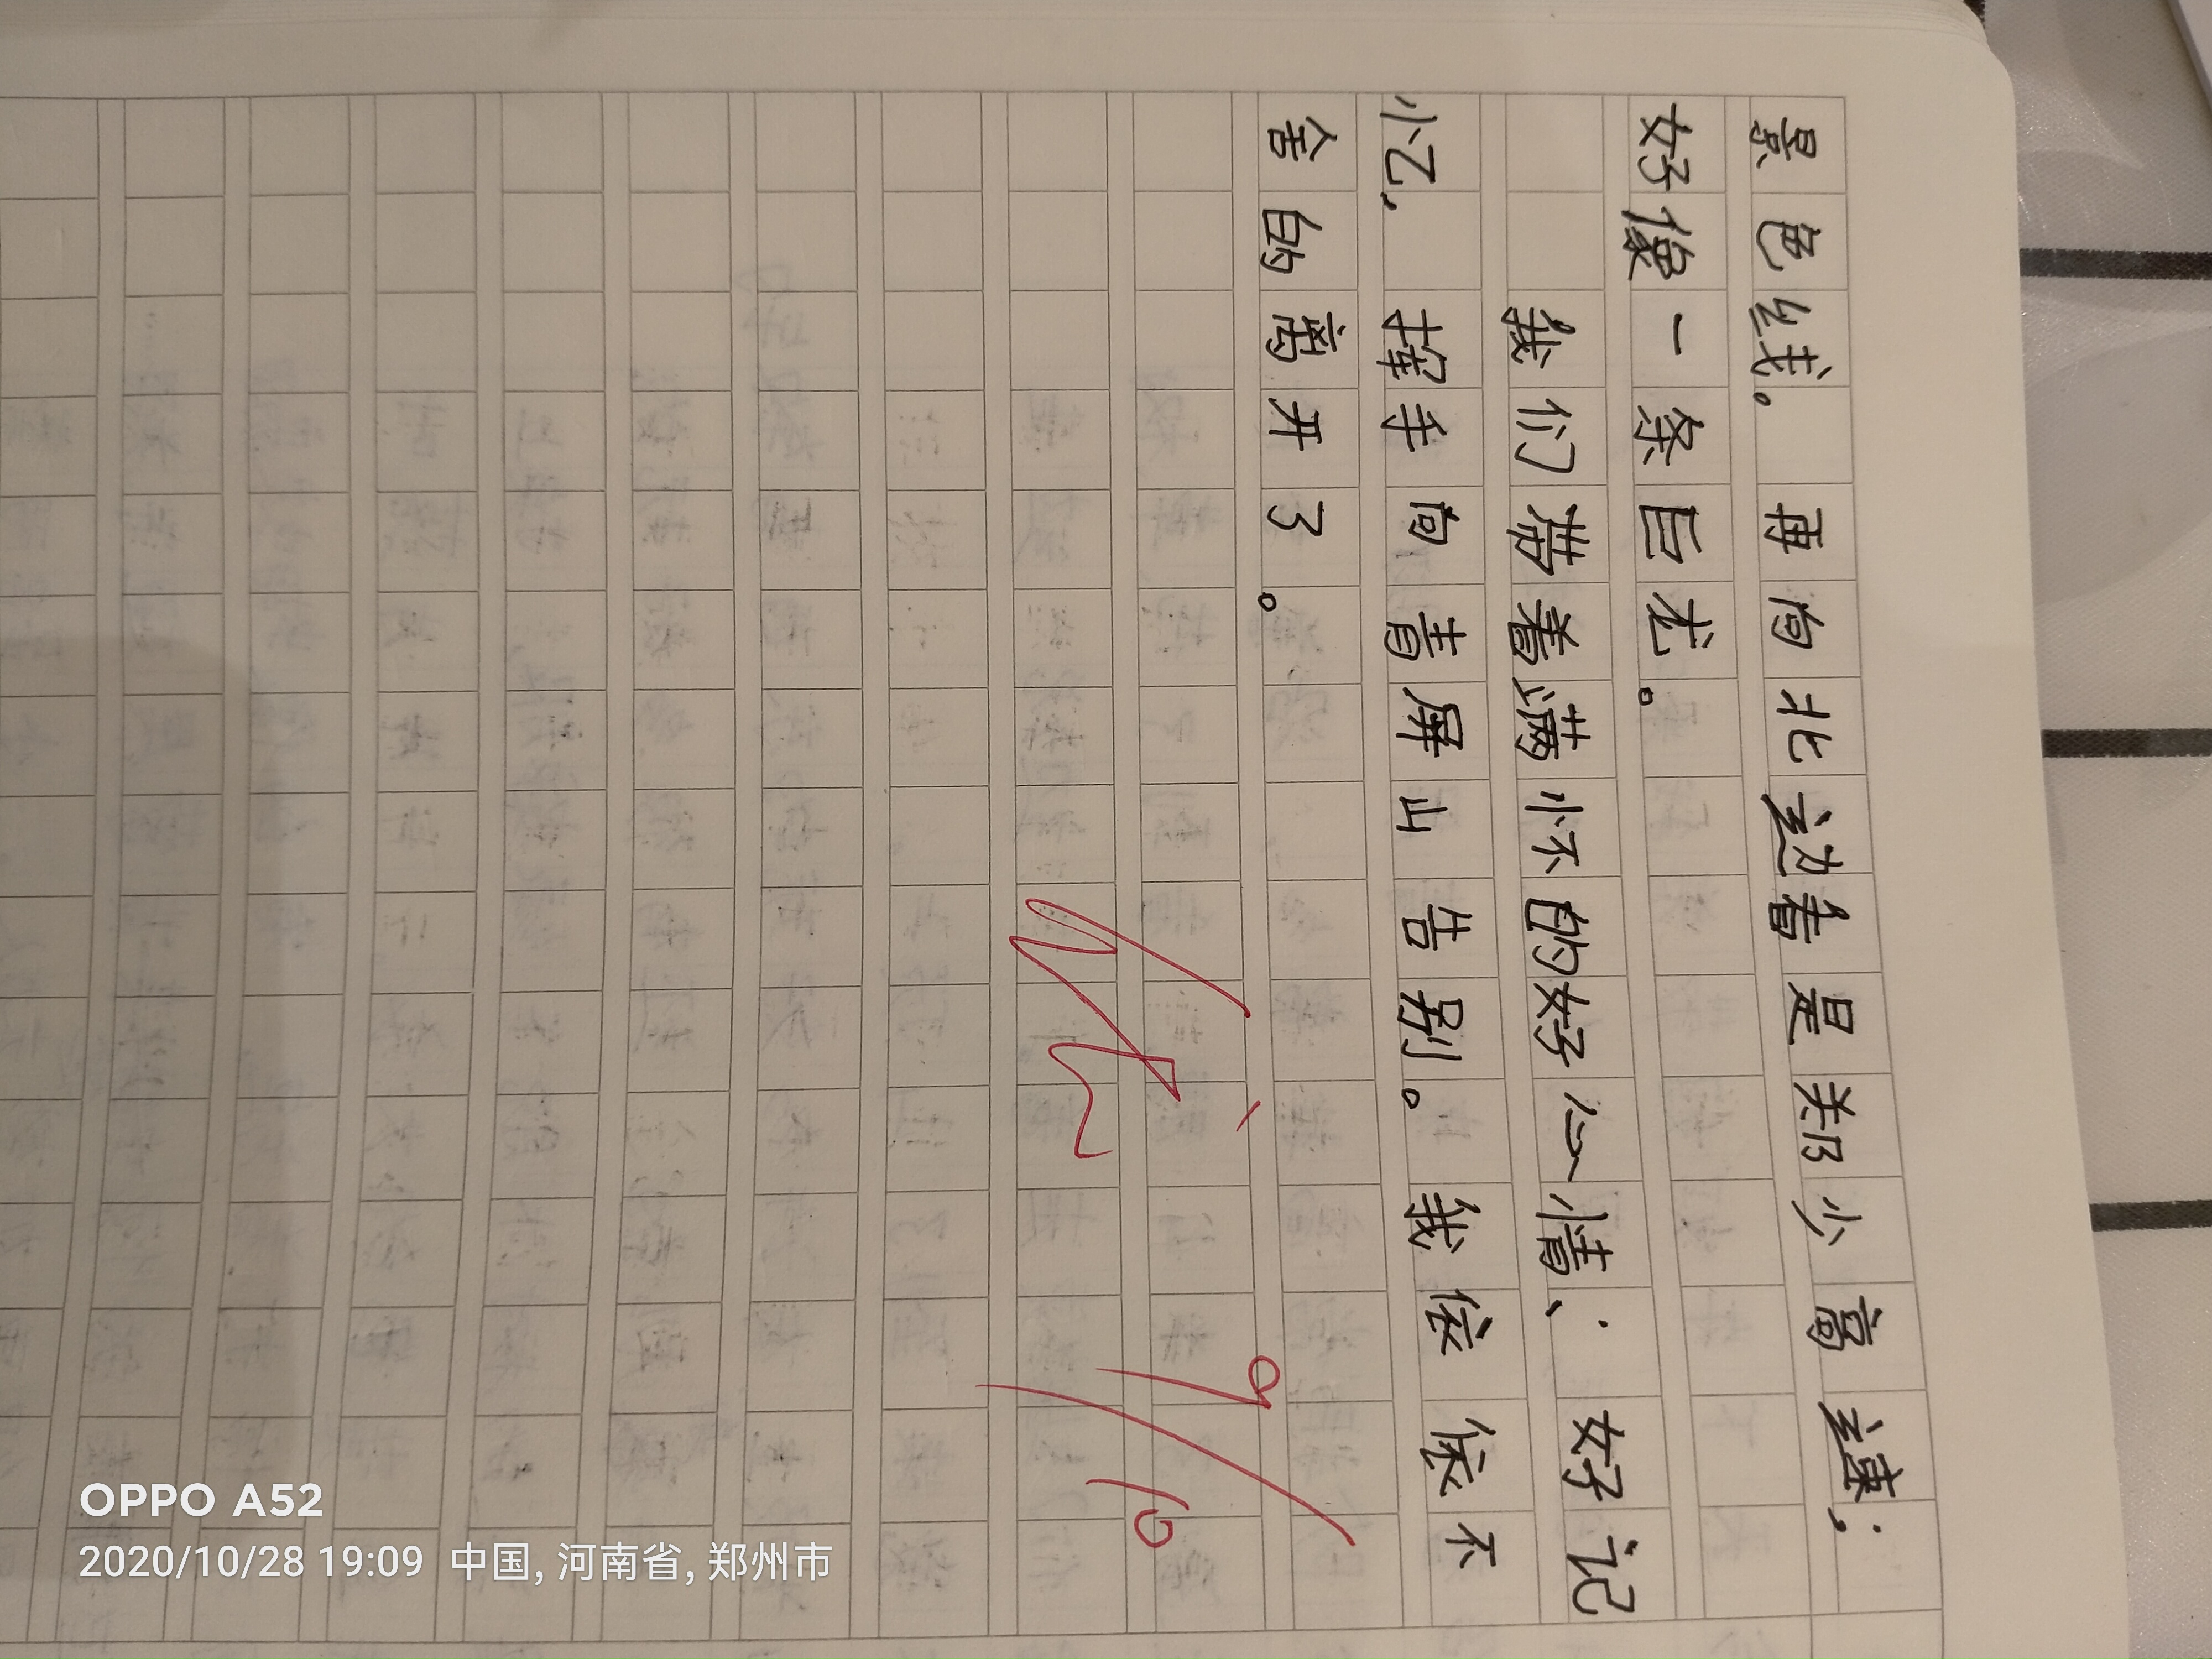 景色线。再向北边看是郑少高速；
好像一条巨龙。
我们带着满怀的好心情、好记
忆，挥手向青屏山告别。我依依不
舍的离开了。
9/10
OPPO A52
2020/10/28 19:09 中国, 河南省, 郑州市